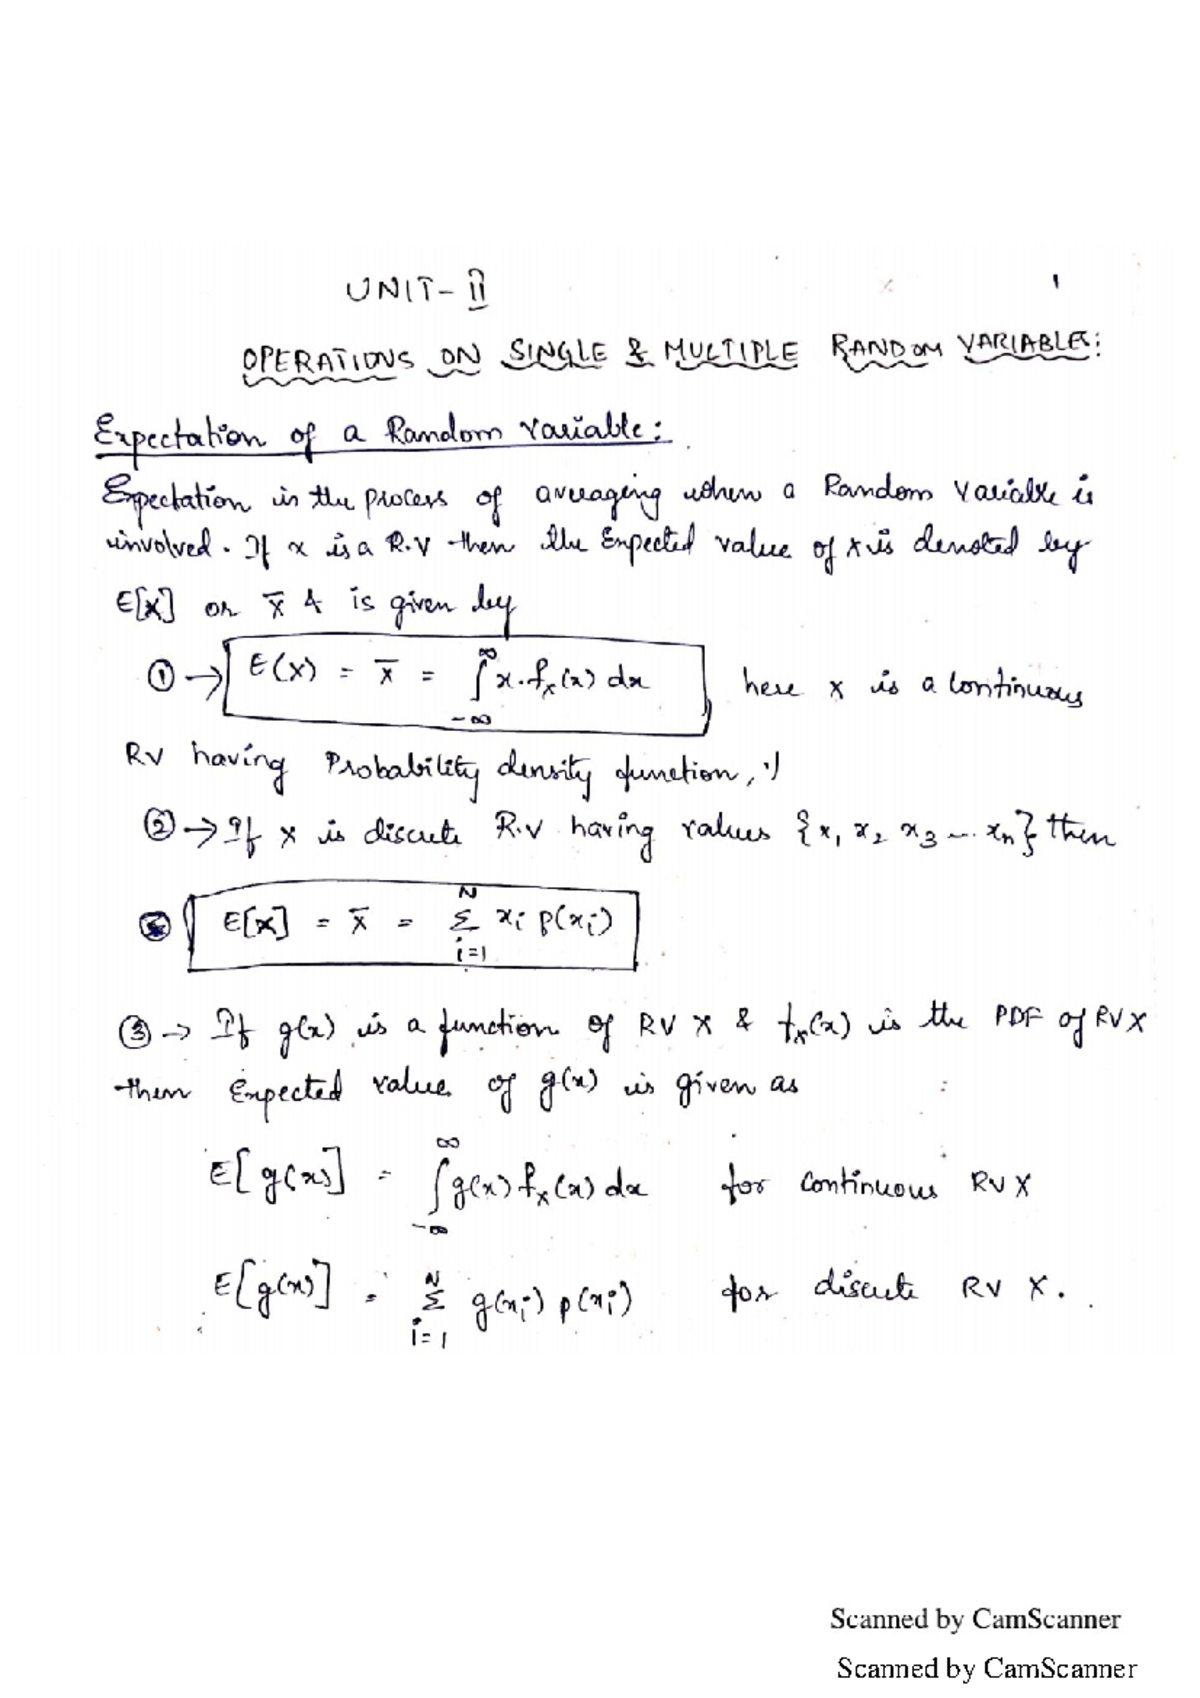 1
UNIT-II
OPERATIONS ON SINGLE & MULTIPLE RANDOM VARIABLES:
Expectation of a Random Variable:
Expectation is the process of averaging when a Random Variable is
involved. If x is a R.V then the Expected value of X is denoted by
E[X] or X̄ & is given by
① → E(X) = X̄ = ∫_{-∞}^{∞} x. fₓ(x) dx here X is a continuous
RV having Probability density function,
② → If X is discrete R.V having values {x₁ x₂ x₃ ... xₙ} then
E[X] = X̄ = Σ_{i=1}^{N} xᵢ p(xᵢ)
③ → If g(x) is a function of RV X & fₓ(x) is the PDF of RV X
then Expected value of g(x) is given as
E[g(x)] = ∫_{-∞}^{∞} g(x) fₓ(x) dx for continuous RV X
E[g(x)] = Σ_{i=1}^{N} g(xᵢ) p(xᵢ) for discrete RV X.
Scanned by CamScanner
Scanned by CamScanner